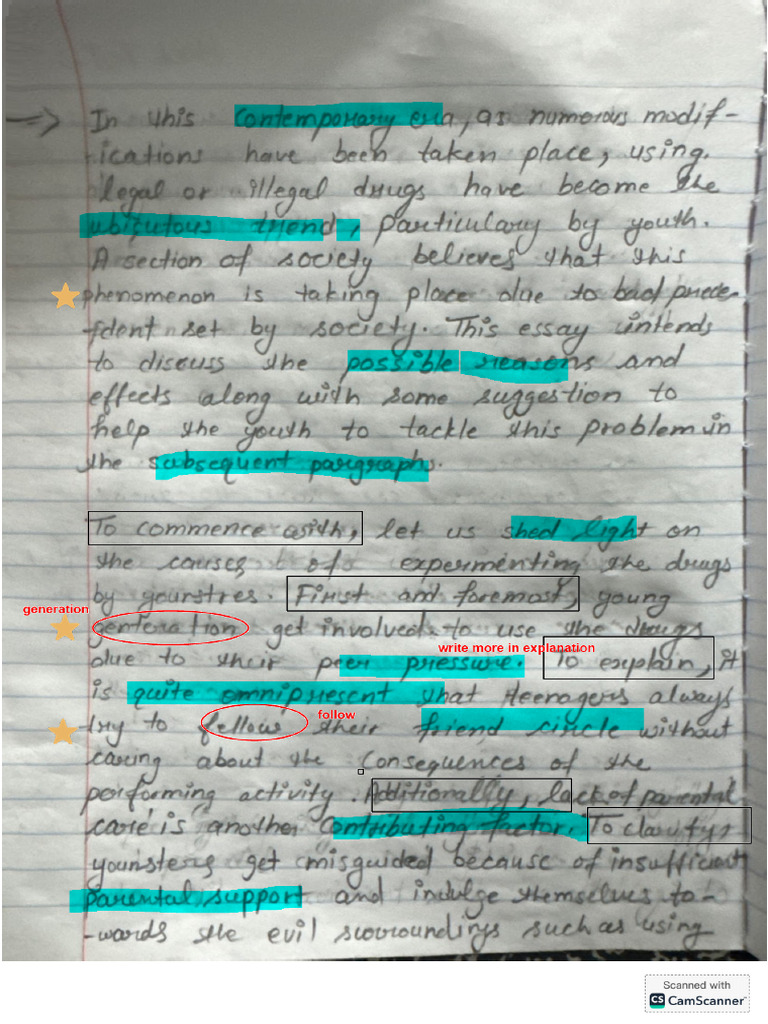 In this contemporary era, as numerous modif-
-ications have been taken place, using.
legal or illegal drugs have become the
ubicutous trend, particulary by youth.
A section of society believes that this
phenomenon is taking place due to bad prece-
-dent set by society. This essay intends
to discuss the possible reasons and
effects along with some suggestion to
help the youth to tackle this problem in
the subsequent paragraphs.
To commence with, let us shed light on
the causes of experimenting the drugs
by First and foremost, young
generation
genteration get involved to use the drugs
write more in explanation
due to their peer pressure. To explain, it
is quite omnipresent that teenagers always
try to fellow their friend circle without
follow
caring about the consequences of the
performing activity. Additionally, lack of parental
care is another contributing factor. To clarify,
younsters get misguided because of insufficient
parental support and indulge themselves to-
-wards the evil surroundings such as using
Scanned with
CS CamScanner